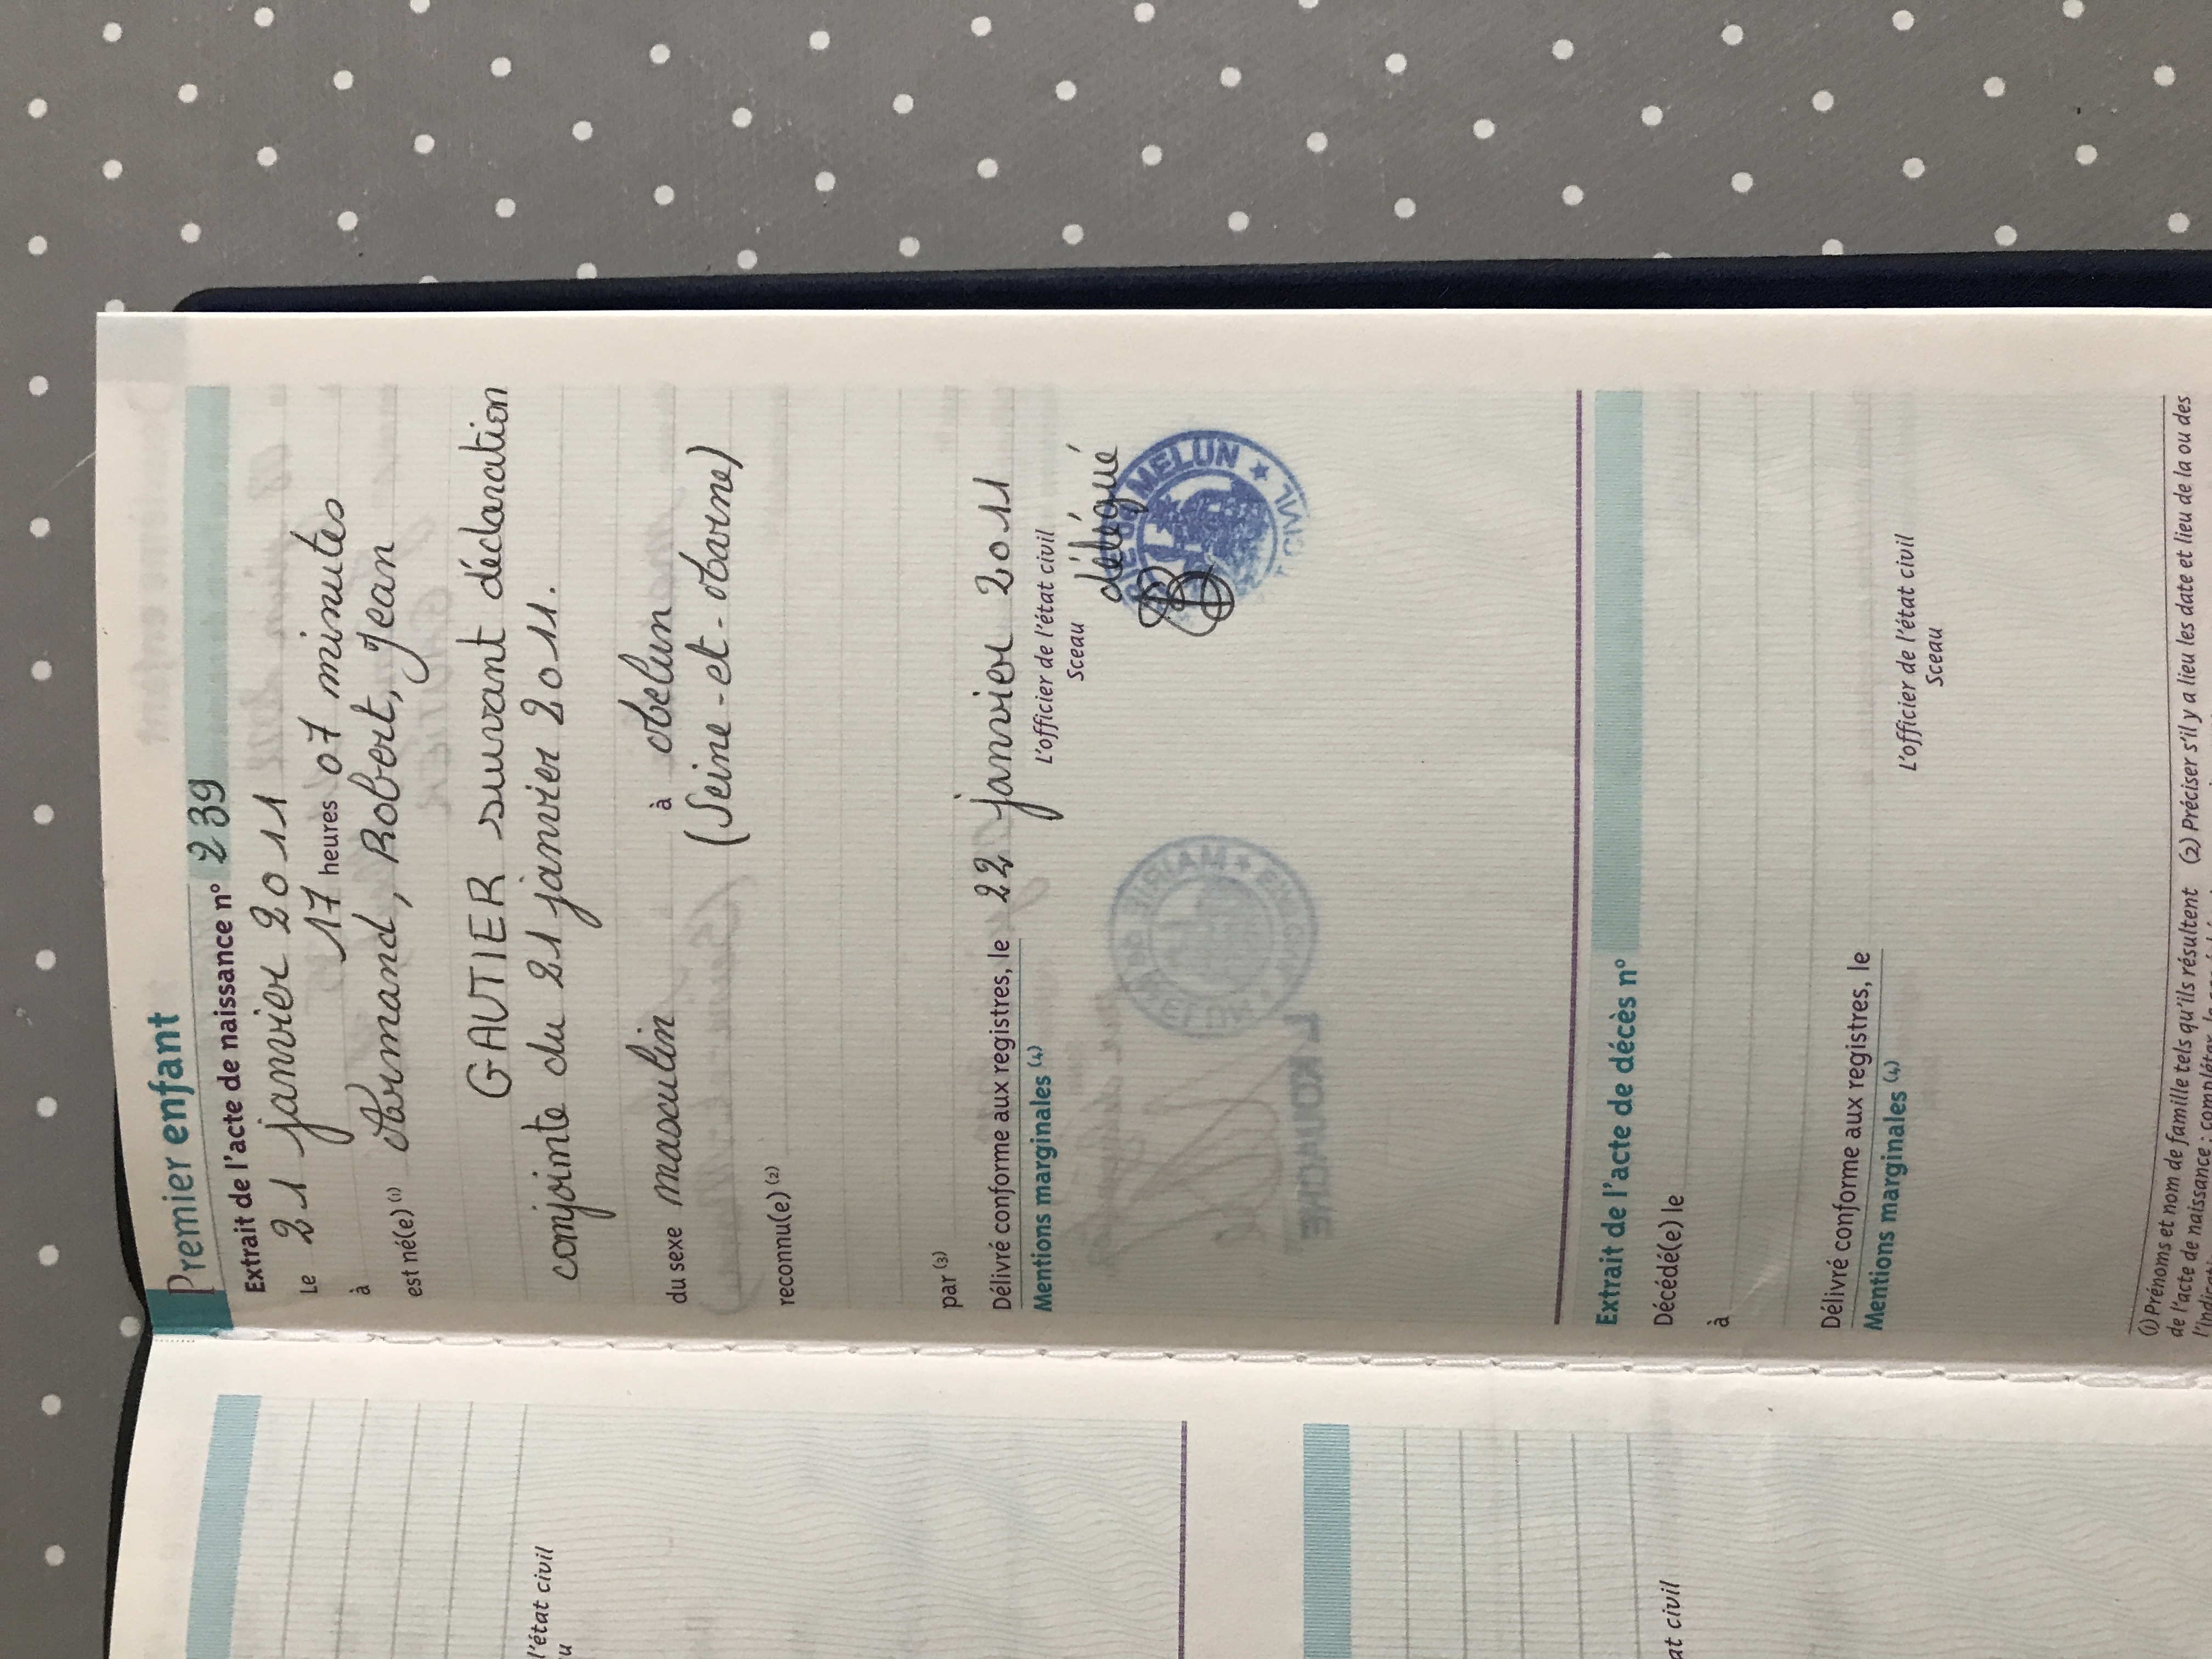 Premier enfant
Extrait de l'acte de naissance n° 239
Le 21 janvier 2011
à 17 heures 07 minutes
est né(e) (1) Armand, Robert, Jean
GAUTIER suivant déclaration
conjointe du 21 janvier 2011.
du sexe masculin à Melun
(Seine-et-Marne)
reconnu(e) (2)
par (3)
Délivré conforme aux registres, le 22 janvier 2011
Mentions marginales (4)
L'officier de l'état civil
Sceau
délégué
MELUN
Extrait de l'acte de décès n°
Décédé(e) le
à
Délivré conforme aux registres, le
Mentions marginales (4)
L'officier de l'état civil
Sceau
(1) Prénoms et nom de famille tels qu'ils résultent (2) Préciser s'il y a lieu les date et lieu de la ou des
de l'acte de naissance ; compléter
l'état civil
at civil